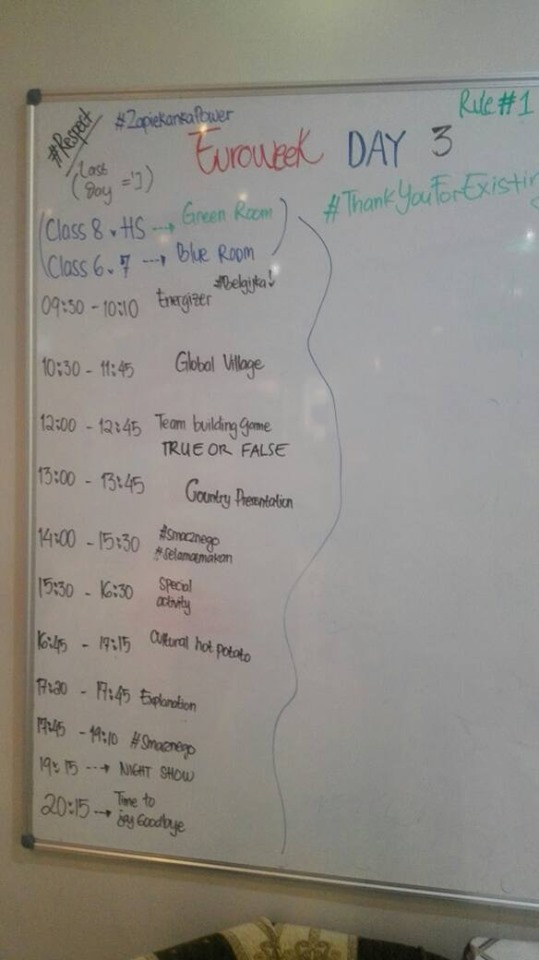 Rule #1
#ZapiekankaPower
#Respect
EuroWeek DAY 3
(Last
Day ='])
#ThankYouForExistin
Class 8. HS ---> Green Room
Class 6. 7 ---> Blue Room
#Belgijka!
09:30 - 10:10 Energizer
10:30 - 11:45 Global Village
12:00 - 12:45 Team building Game
TRUE OR FALSE
13:00 - 13:45 Country Presentation
14:00 - 15:30 #Smacznego
#selamatmakan
15:30 - 16:30 Special
activity
16:45 - 17:15 Cultural hot potato
17:20 - 17:45 Explanation
17:45 - 19:10 #Smacznego
19:15 ---> NIGHT SHOW
20:15 → Time to
say Goodbye